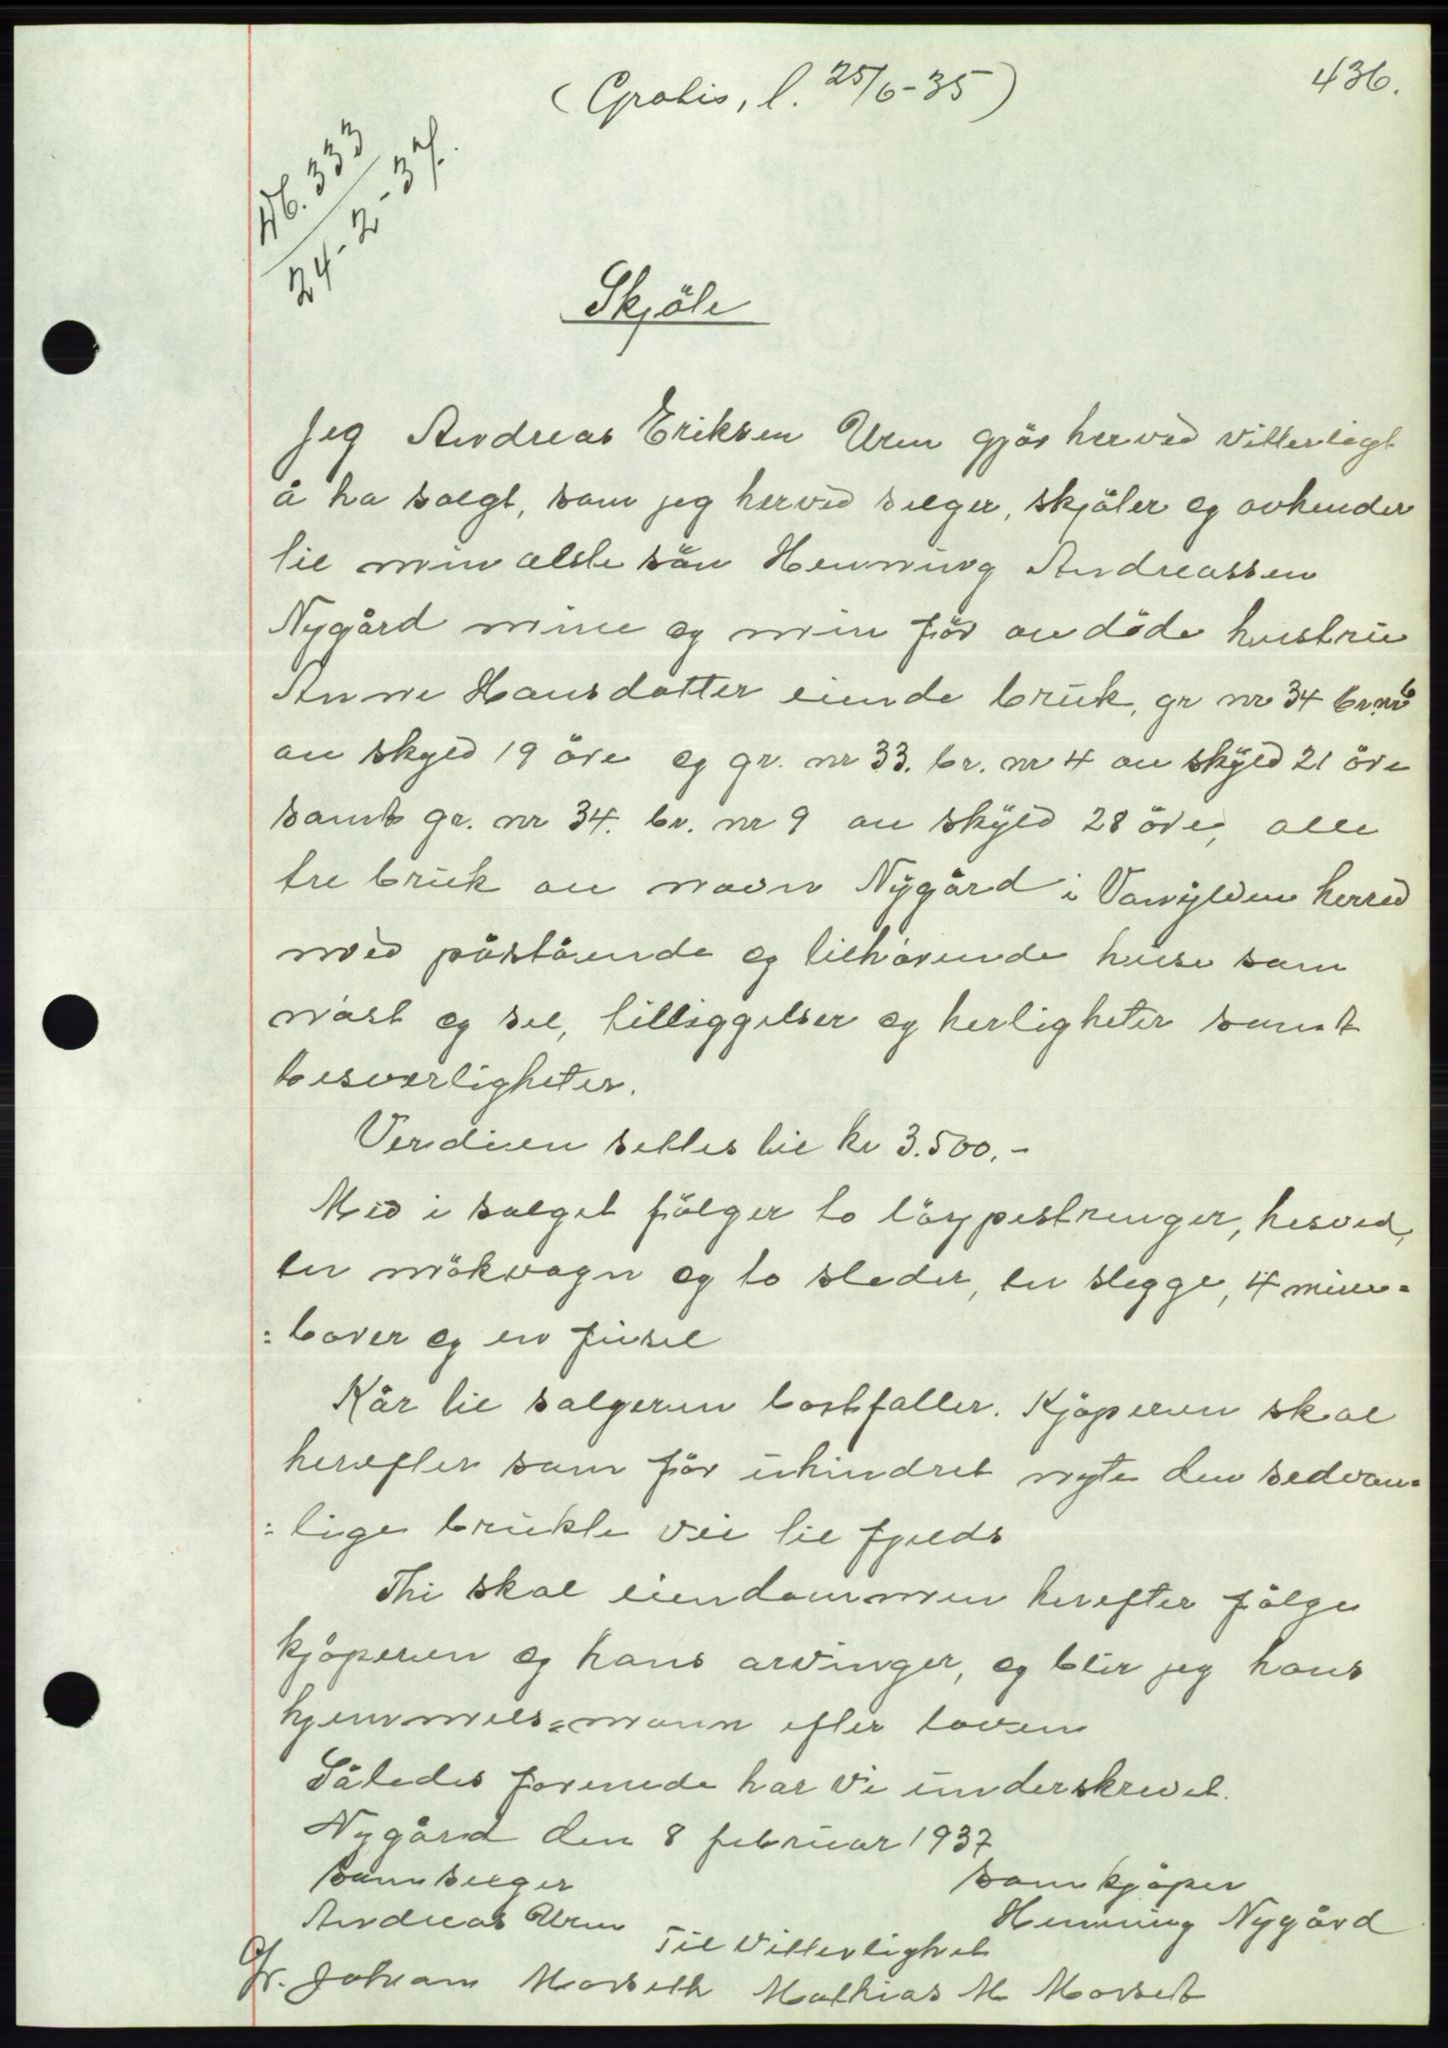 436.
(Gratis, l. 25/6-35)
Nb. 333
24-2-37.
Skjöte
Jeg Andreas Eriksen Uren gjör herved vitterligt
å ha solgt, som jeg herved selger, skjöter og avhender
til min elste sön Henning Andreassen
Nygård mine og min för avdöde hustru
Anne Hansdatter eiende bruk, gr nr 34 br. nr 6
av skyld 19 öre og gr. nr 33. br. nr 4 av skyld 21 öre
samt gr. nr 34. br. nr 9 av skyld 28 öre, alle
tre bruk av navn Nygård i Vanylven herred
med påstående og tilhörende huse som
nöst og sel, tilliggelser og herligheter samt
besverligheter.
Verdien settes til kr 3.500.-
Med i salget fölger to löypestrenger, hesved,
en mökvogn og to sleder, en slegge, 4 mine-
: borer og en fusel
Kår til selgeren bortfaller. Kjöperen skal
herefter som för uhindret nyte den sedvan=
: lige brukte vei til fjelds
Thi skal eiendommen herefter fölge
kjöperen og hans arvinger, og blir jeg hans
hjemmels=mann efter loven
Således forenede har vi underskrevet.
Nygård den 8 februar 1937
som selger som kjöper
Andreas Uren Henning Nygård
Til Vitterlighet
Johan Morseth Mathias M Morset